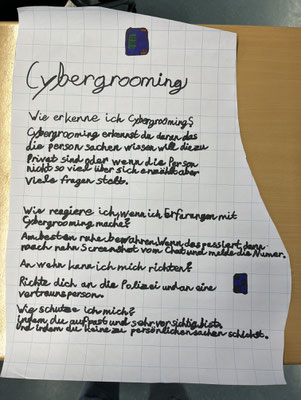 Cybergrooming
Wie erkenne ich Cybergrooming?
Cybergrooming erkennst du daran das
die person sachen wissen will die zu
Privat sind oder wenn die Person
nicht so viel über sich erzählt aber
viele fragen stellt.
Wie reagiere ich, wenn ich Erfarungen mit
Cybergrooming mache?
Am besten ruhe bewahren. Wenn das passiert, dann
mach nehn Screenshot vom Chat und melde die Numer.
An wehn kann ich mich richten?
Richte dich an die Polizei und an eine
vertrauensperson.
Wie schütze ich mich?
Indem du aufpast und sehr vorsichtig bist.
und indem du keine zu persönlichen sachen schickst.